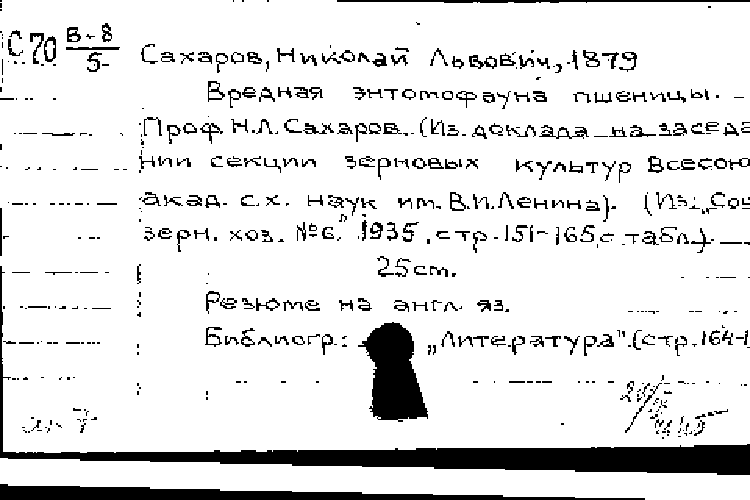 С70 Б-8/5- Сахаров, Николай Львович, 1879
Вредная энтомофауна пшеницы. -
Проф. Н.Л. Сахаров. (Из доклада на заседа
нии секции зерновых культур Всесою
акад. с.х. наук им. В.И. Ленина). (Из: „Соц
зерн. хоз. №6", 1935, стр. 151-165, с табл.)
25cm.
Резюме на англ яз.
Библиогр: „Литература". (стр. 164-1